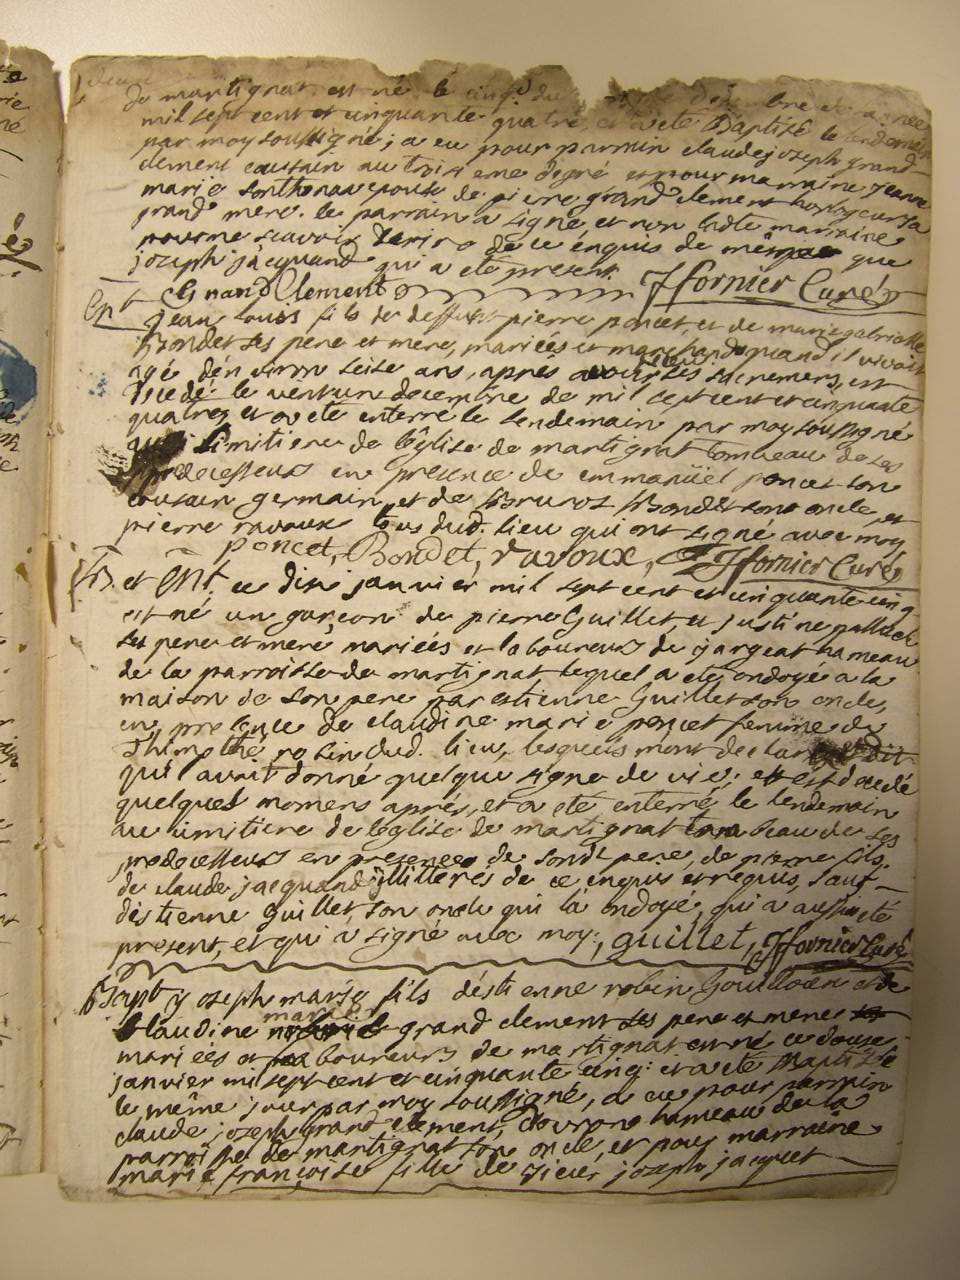 de martignat est né le cinq du décembre et année
mil sept cent et cinquante quatre, et a eté Baptisé le lendemain
par moy soussigné; a eu pour parrain claude joseph grand
clement coussin au troisieme degré et pour marraine jeanne
marie sonthonax epouse de pierre grand clement horlogeur sa
grand mere. le parrain a signé et non ladte marraine
pour ne scavoir de ce enquis de même que
joseph jacquand qui a eté present.
Grand Clement JFornier Curé
Ent jean louis fils de deffunt pierre poncet et de marie gabrielle
Bondet ses pere et mere, mariés et marchands quand il vivoit
agé d'environ seise ans, aprés avoir ses sacremens, est
decedé le vint un decembre de mil sept cent et cinquante
quatre, et a eté enterré le lendemain par moy soussigné
cimitiere de l'église de martignat tombeau de ses
predecesseurs en presence de emmanüel poncet son
coussin germain, et de Bruno Bondet son oncle, et
pierre ravoux tous dud. lieu qui ont signé avec moy
poncet, Bondet, ravoux, JFornier Curé
et Ent. ce dix janvier mil sept cent et cinquante cinq
est né un garçon de pierre Guillet, et justine
ses pere et mere mariées et laboureurs de gargeat hameau
de la parroisse de martignat, lequel a eté ondoyé a la
maison de son pere par estienne Guillet son oncle,
en presence de claudine marie poncet femme de
Thimothé rosin dud. lieu, lesquels m'ont declaré
qu'il avait donné quelque signe de vie; et est decedé
quelques momens aprés, et a eté enterré le lendemain
au cimitiere de l'église de martignat tombeau de ses
predecesseurs en presence de sondt pere, de pierre fils
de claude jacquand illitterés de ce enquis et requis, sauf
d'éstienne Guillet, son oncle qui l'a ondoyé, qui a aussi eté
present, et qui a signé avec moy: guillet, JFornier Curé
Bapt joseph marie fils d'éstienne robin Gouilloux et de
marie
Claudine grand clement ses pere et mere
mariées et laboureurs de martignat est né ce douse
janvier mil sept cent et cinquante cinq: et a eté Baptisé
le même jour par moy soussigné, a eu pour parrain
claude joseph grand clement, hameau de la
parroisse de martignat son oncle, et pour marraine
marie françoise fille de sieur joseph jacquet